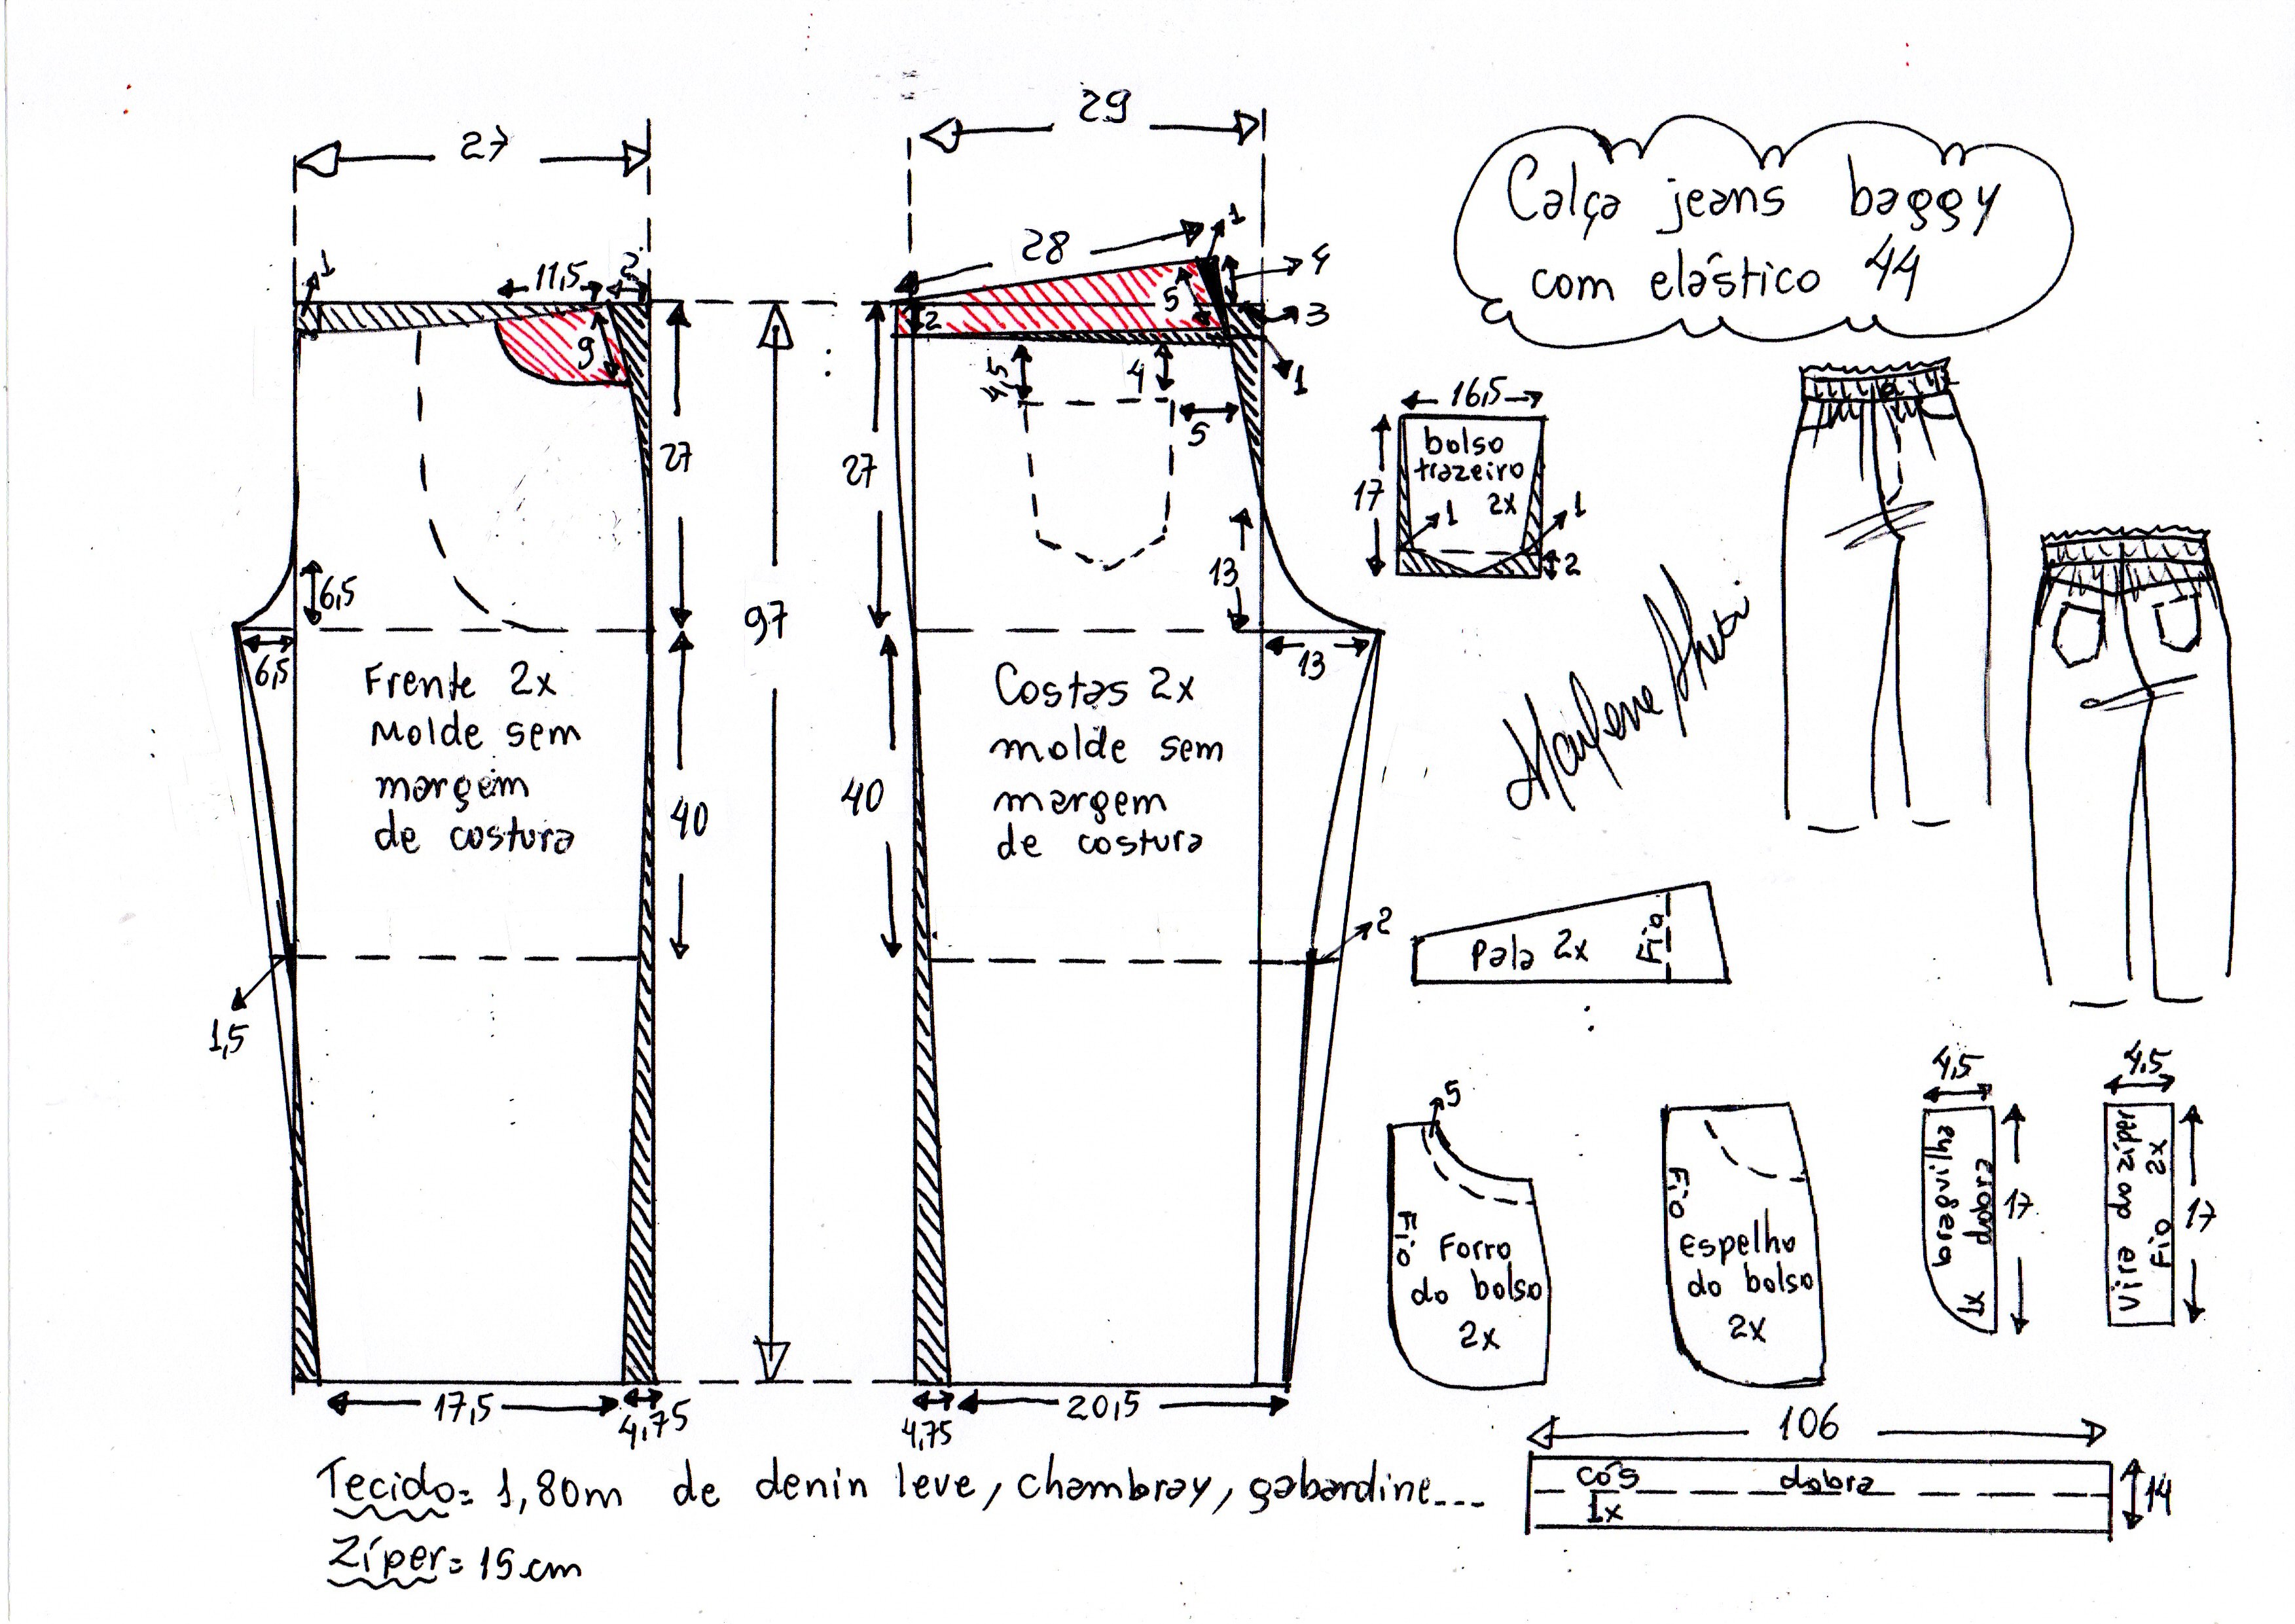 27
29
Calça jeans baggy
com elástico 44
1
11,5
2
9
27
6,5
6,5
Frente 2x
Molde sem
margem
de costura
40
1,5
17,5
4,75
97
28
1
4
5
3
2
1
4,5
4
5
27
13
13
Costas 2x
molde sem
margem
de costura
40
2
4,75
20,5
16,5
17
bolso
trazeiro
2x
1
1
2
Pala 2x
Fio
5
Fio
Forro
do bolso
2x
Fio
Espelho
do bolso
2x
4,5
braguilha
1x dobra
17
4,5
Vira do zíper
Fio 2x
17
106
cós dobra
1x
14
Tecido= 1,80m de denin leve, chambray, gabardine...
Zíper= 15cm